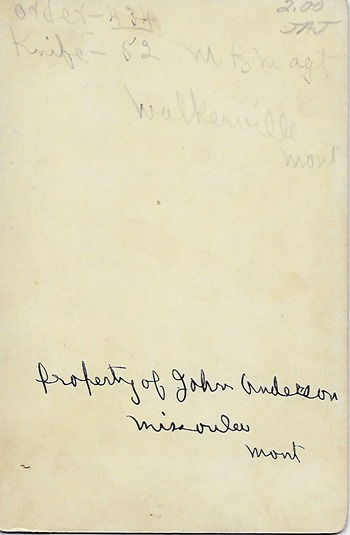 order - 434
2.00
JAJ
Knife - 52
Walkerville
mont
Property of John Anderson
Missoula
mont